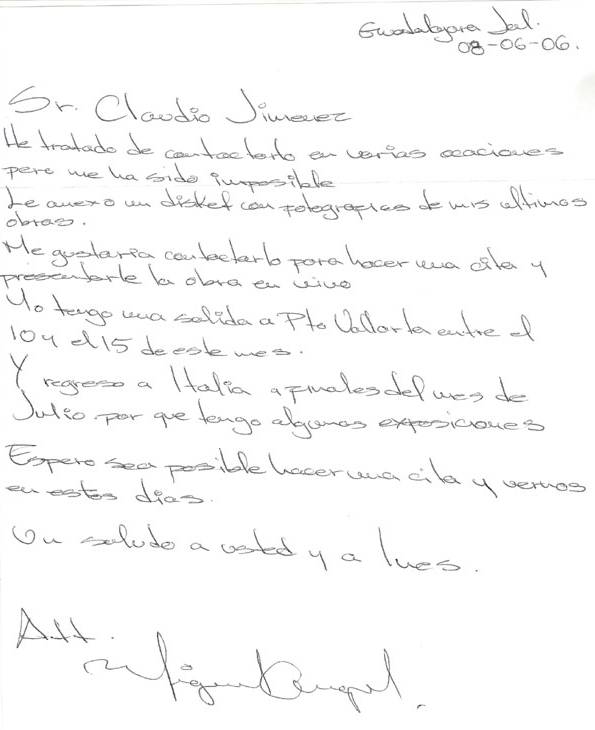 Guadalajara Jal.
08-06-06.
Sr. Claudio Jimenez
He tratado de contactarlo en varias ocaciones
pero me ha sido imposible
Le anexo un disket con fotografias de mis ultimos
obras.
Me gustaria contactarlo para hacer una cita y
presentarle la obra en vivo
Yo tengo una salida a Pto Vallarta entre el
10 y el 15 de este mes.
Y regreso a Italia a finales del mes de
Julio por que tengo algunas exposiciones
Espero sea posible hacer una cita y vernos
en estos dias.
Un saludo a usted y a Ines.
Att.
Miguel Angel.